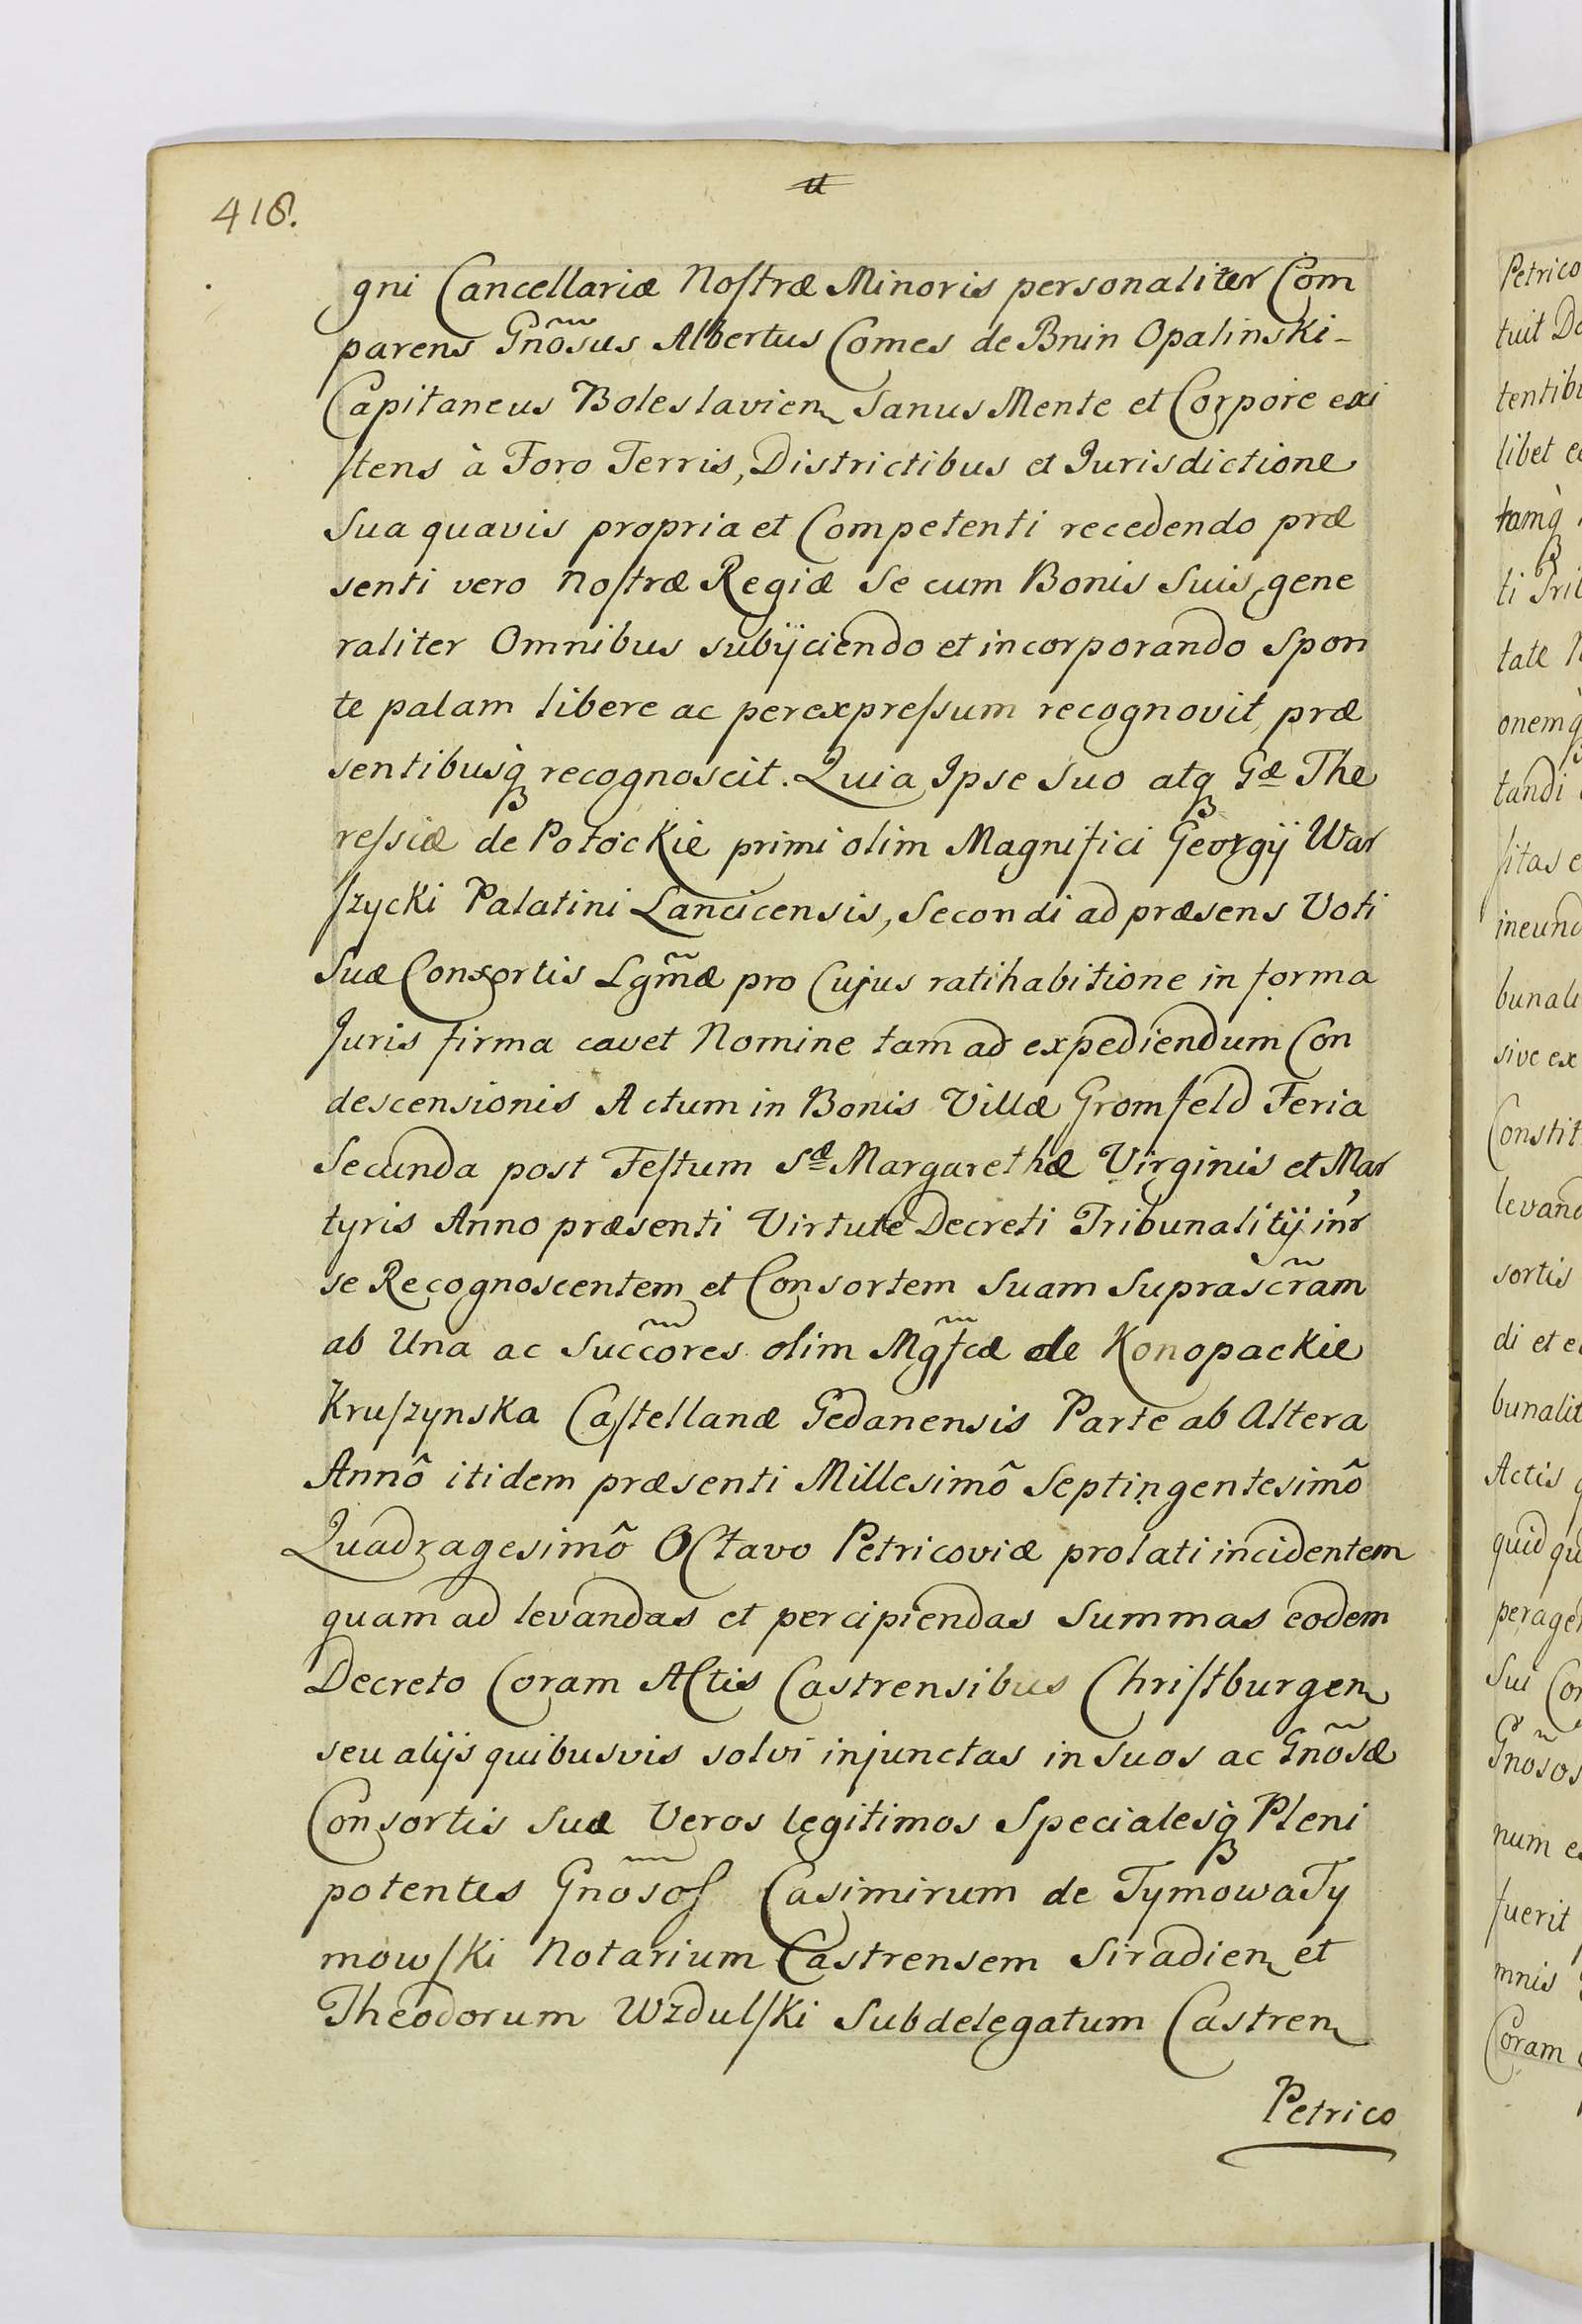 418.
gni Cancellariæ Nostræ Minoris personaliter Com
parens Gnõsus Albertus Comes de Bnin Opalinski -
Capitaneus Boleslavien Sanus Mente et Corpore exi
stens à Foro Terris, Districtibus et Jurisdictione
Sua quavis propria et Competenti recedendo præ
senti vero Nostræ Regiæ Se cum Bonis Suis gene
raliter Omnibus subijciendo et incorporando Spon
te palam libere ac perexpressum recognovit, præ
sentibusq̀ recognoscit. Quia Ipse Suo atq Gæ The
ressiæ de Potockie primi olim Magnifici Georgij War
szycki Palatini Lancicensis, Secondi ad præsens Voti
Suæ Consortis Lgm̃æ pro Cujus ratihabitione in forma
Juris firma cavet Nomine tam ad expediendum Con
descensionis Actum in Bonis Villæ Gromfeld Feria
Secunda post Festum Sæ Margarethæ Virginis et Mar
tyris Anno præsenti Virtute Decreti Tribunalitij inr
se Recognoscentem et Consortem Suam Suprascr̃am
ab Una ac Succõres olim Mgf̃cæ de Konopackie
Kruszynska Castellanæ Gedanensis Parte ab Altera
Annô itidem præsenti Millesimô Septingentesimô
Quadragesimô Octavo Petricoviæ prolati incidentem
quam ad levandas et percipiendas Summas eodem
Decreto Coram Actis Castrensibus Christburgen
seu alijs quibusvis solvi injunctas in suos ac Gnõsæ
Consortis Suæ Veros legitimos Specialesq̀ Pleni
potentes Gnõsos Casimirum de Tymowa Ty
mowski Notarium Castrensem Siradien et
Theodorum Wzdulski Subdelegatum Castren
Petrico